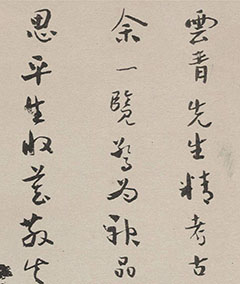 雲青先生精考古
余一覽驚為神品
思平生收藏散失